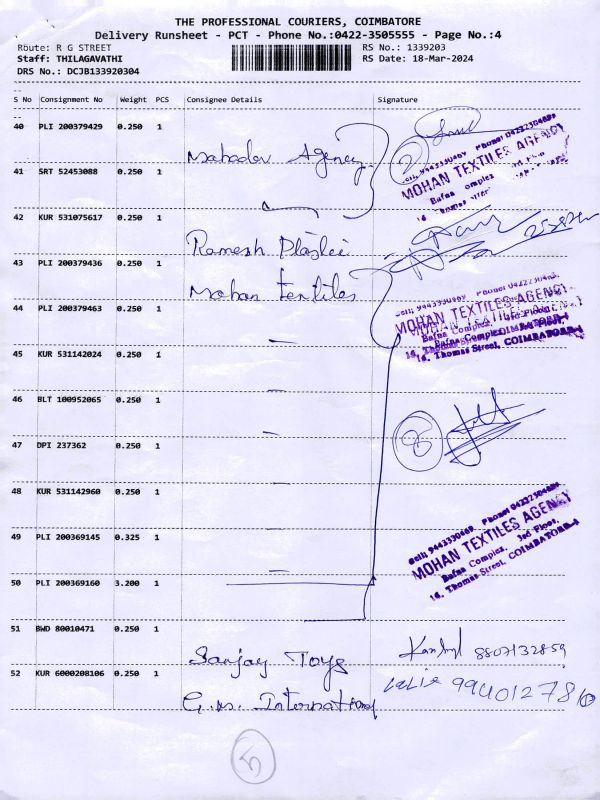 THE PROFESSIONAL COURIERS, COIMBATORE
Delivery Runsheet - PCT - Phone No.:0422-3505555 - Page No.:4
Route: R G STREET RS No.: 1339203
Staff: THILAGAVATHI RS Date: 18-Mar-2024
DRS No.: DCJB133920304
S No Consignment No Weight PCS Consignee Details Signature
40 PLI 200379429 0.250 1
Mahadev Agency
MOHAN TEXTILES AGENCY
41 SRT 52453088 0.250 1
42 KUR 531075617 0.250 1
Ramesh Plastic
43 PLI 200379436 0.250 1
Mohan textiles
44 PLI 200379463 0.250 1
MOHAN TEXTILES AGENCY
Bafna Complex,
14, Thomas Street, COIMBATORE-1
45 KUR 531142024 0.250 1
46 BLT 100952065 0.250 1
8
47 DPI 237362 0.250 1
48 KUR 531142960 0.250 1
Cell: 9443330669 Phone: 04222304686
MOHAN TEXTILES AGENCY
Bafna Complex, 3rd Floor,
14, Thomas Street, COIMBATORE-1
49 PLI 200369145 0.325 1
50 PLI 200369160 3.200 1
51 BWD 80010471 0.250 1
Sanjay Toys 8807132859
52 KUR 6000208106 0.250 1
G.M. International 9940127816
5